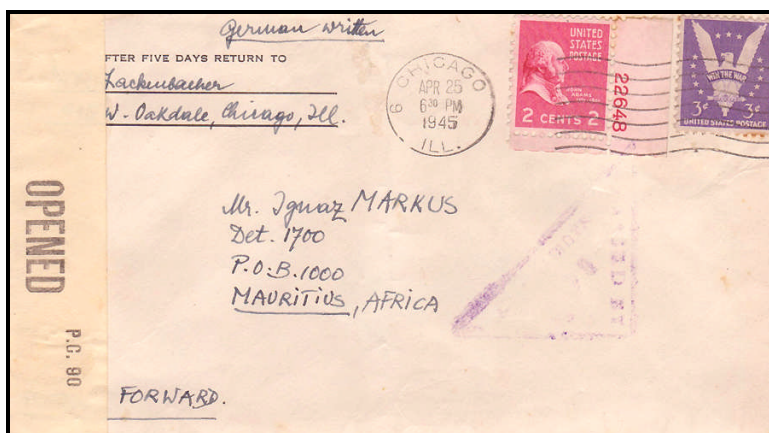 German written
FTER FIVE DAYS RETURN TO
Lackenbacher
W. Oakdale, Chicago, Ill.
OPENED
P.C. 90
CHICAGO
APR 25
6 30 PM
1945
ILL.
6
UNITED
STATES
POSTAGE
JOHN
ADAMS
2 CENTS 2
22648
WIN THE WAR
3¢ 3¢
UNITED STATES POSTAGE
Mr. Ignaz MARKUS
Det. 1700
P.O.B. 1000
MAURITIUS, AFRICA
FORWARD.